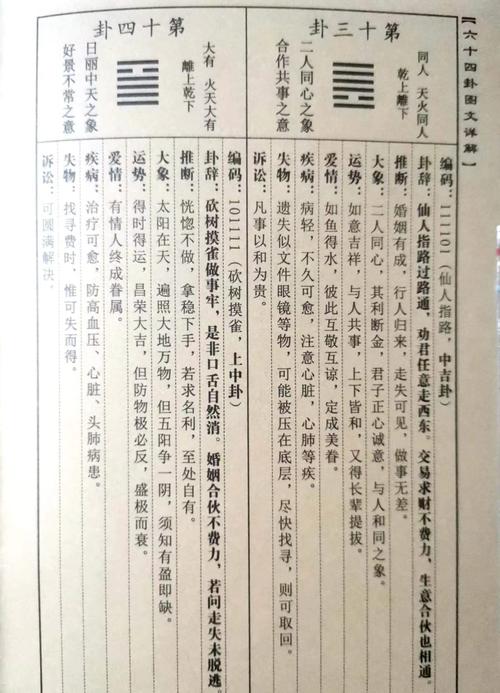 【六十四卦图文详解】
第十三卦
同人 天火同人
乾上離下
二人同心之象
合作共事之意
编码:111101(仙人指路,中吉卦)
卦辞:仙人指路过路通,劝君任意走西东。交易求财不费力,生意合伙也相通。
推断:婚姻有成,行人归来,走失可见,做事无差。
大象:二人同心,其利断金,君子正心诚意,与人和同之象。
运势:如意吉祥,与人共事,上下皆和,又得长辈提拔。
爱情:如鱼得水,彼此互敬互谅,定成美眷。
疾病:病轻,不久可愈,注意心脏,心肺等疾。
失物:遗失似文件眼镜等物,可能被压在底层,尽快找寻,则可取回。
诉讼:凡事以和为贵。
第十四卦
大有 火天大有
離上乾下
日丽中天之象
好景不常之意
编码:101111(砍树摸雀,上中卦)
卦辞:砍树摸雀做事牢,是非口舌自然消。婚姻合伙不费力,若问走失未脱逃。
推断:恍惚不做,拿稳下手,若求名利,至处自有。
大象:太阳在天,遍照大地万物,但五阳争一阴,须知有盈即缺。
运势:得时得运,昌荣大吉,但防物极必反,盛极而衰。
爱情:有情人终成眷属。
疾病:治疗可愈,防高血压、心脏、头肺病患。
失物:找寻费时,惟可失而得。
诉讼:可圆满解决。